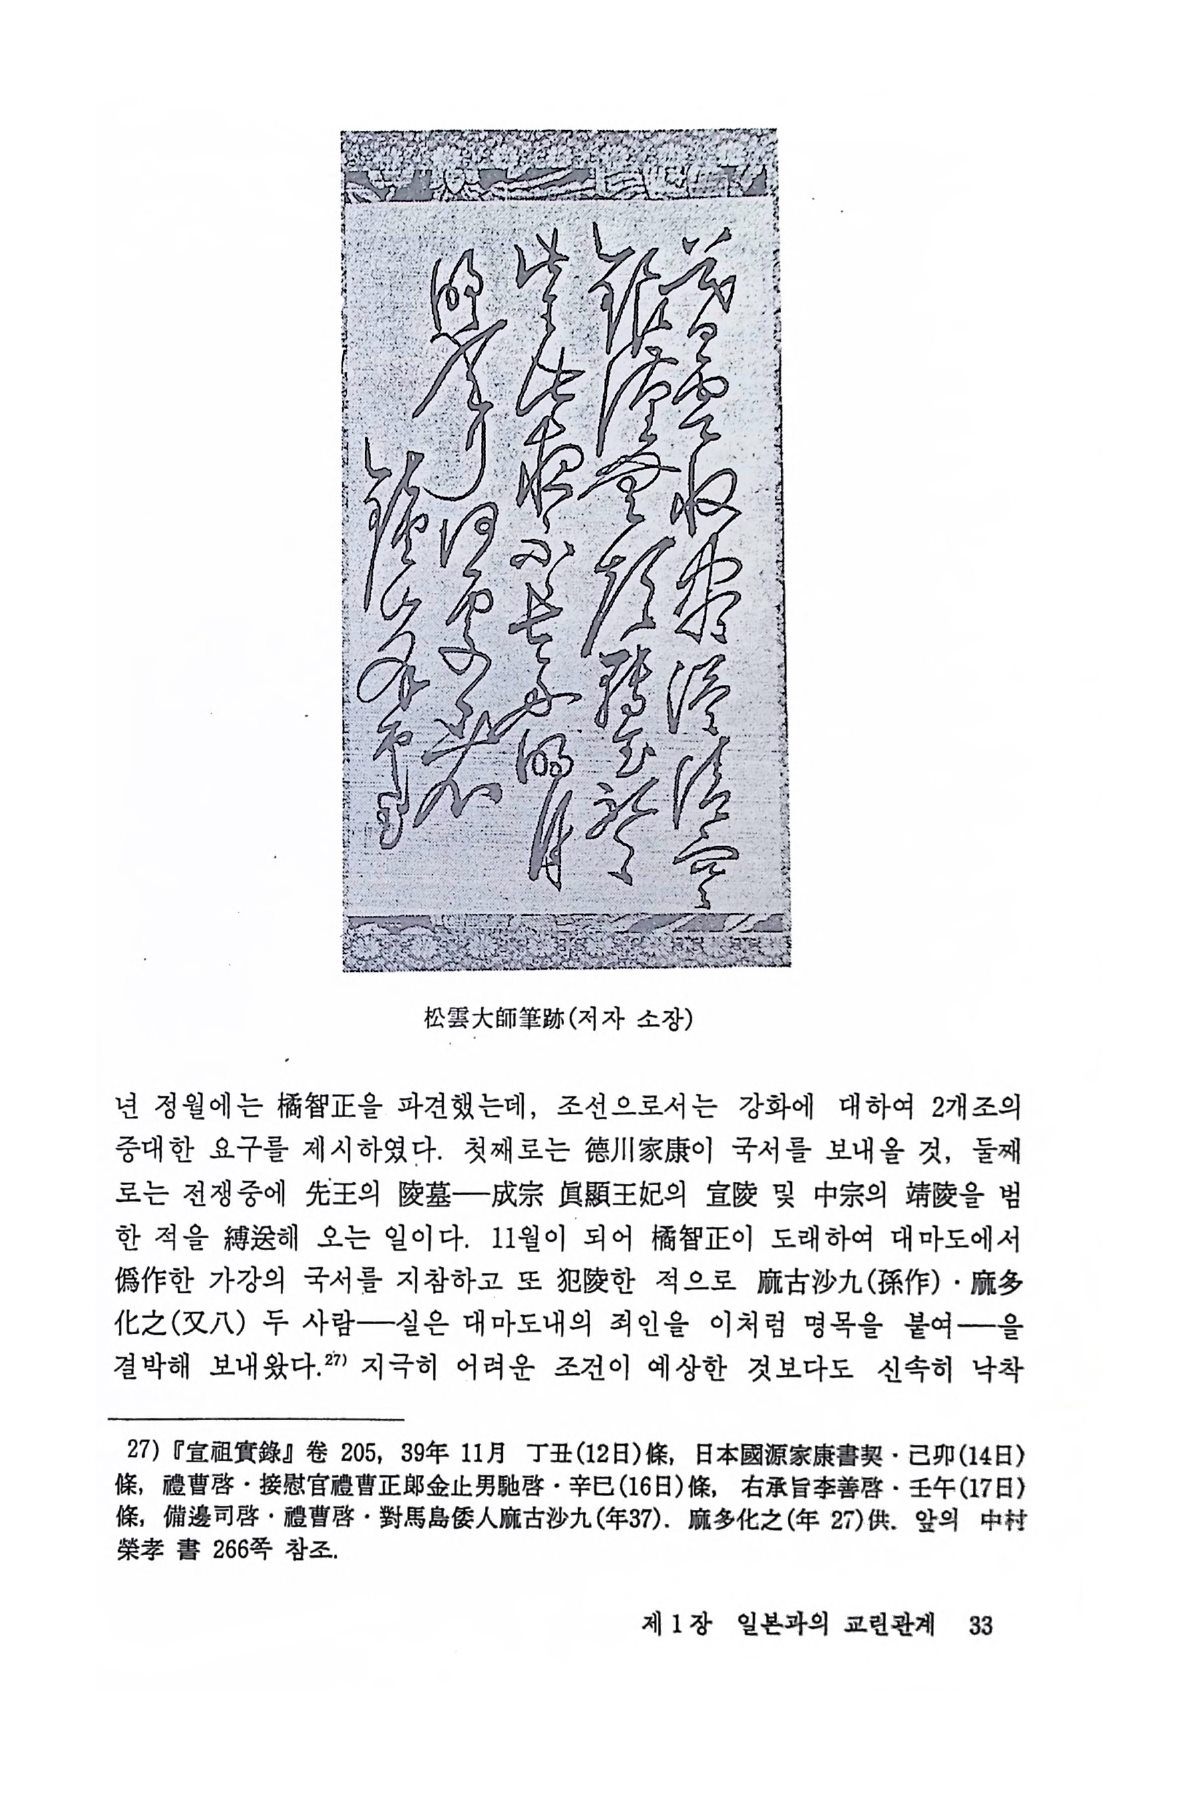 暮雲收盡溢清寒
銀漢無聲轉玉盤
此生此夜不長好明月
明年何處看
松雲大師筆跡(저자 소장)
년 정월에는 橘智正을 파견했는데, 조선으로서는 강화에 대하여 2개조의
중대한 요구를 제시하였다. 첫째로는 德川家康이 국서를 보내올 것, 둘째
로는 전쟁중에 先王의 陵墓──成宗 眞顯王妃의 宣陵 및 中宗의 靖陵을 범
한 적을 縛送해 오는 일이다. 11월이 되어 橘智正이 도래하여 대마도에서
僞作한 가강의 국서를 지참하고 또 犯陵한 적으로 麻古沙九(孫作)·麻多
化之(又八) 두 사람──실은 대마도내의 죄인을 이처럼 명목을 붙여──을
결박해 보내왔다.27) 지극히 어려운 조건이 예상한 것보다도 신속히 낙착
27)『宣祖實錄』卷 205, 39年 11月 丁丑(12日)條, 日本國源家康書契·己卯(14日)
條, 禮曹啓·接慰官禮曹正郎金止男馳啓·辛巳(16日)條, 右承旨李善啓·壬午(17日)
條, 備邊司啓·禮曹啓·對馬島倭人麻古沙九(年37). 麻多化之(年 27)供. 앞의 中村
榮孝 書 266쪽 참조.
제1장 일본과의 교린관계 33